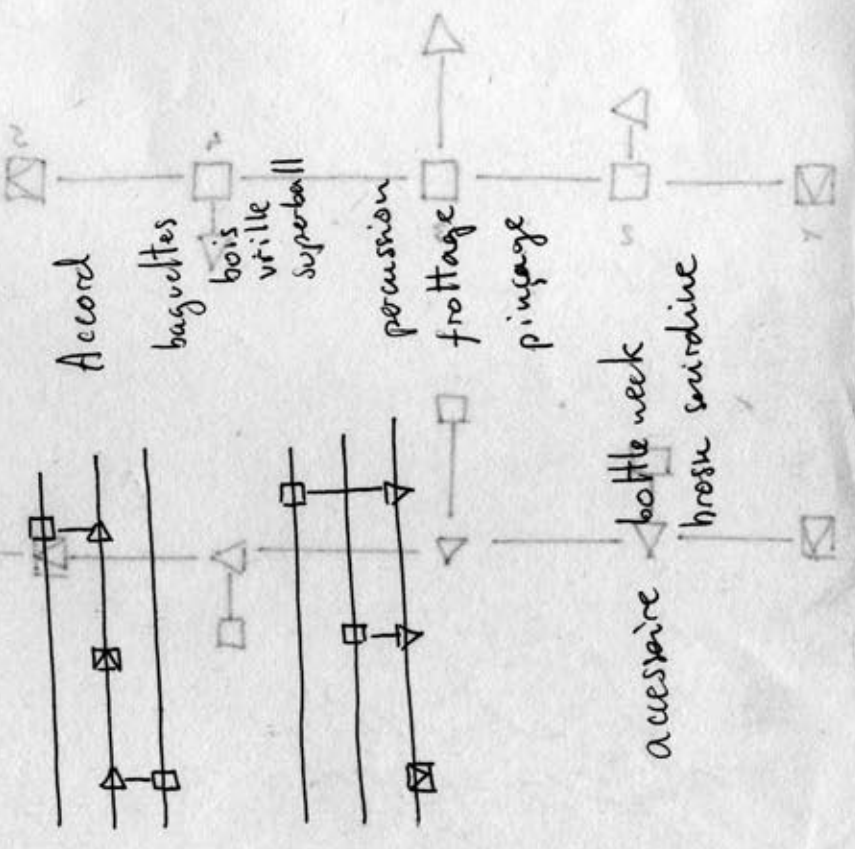 Accord
baguettes
bois
vrille
superball
percussion
frottage
pinçage
accessoire
bottle neck